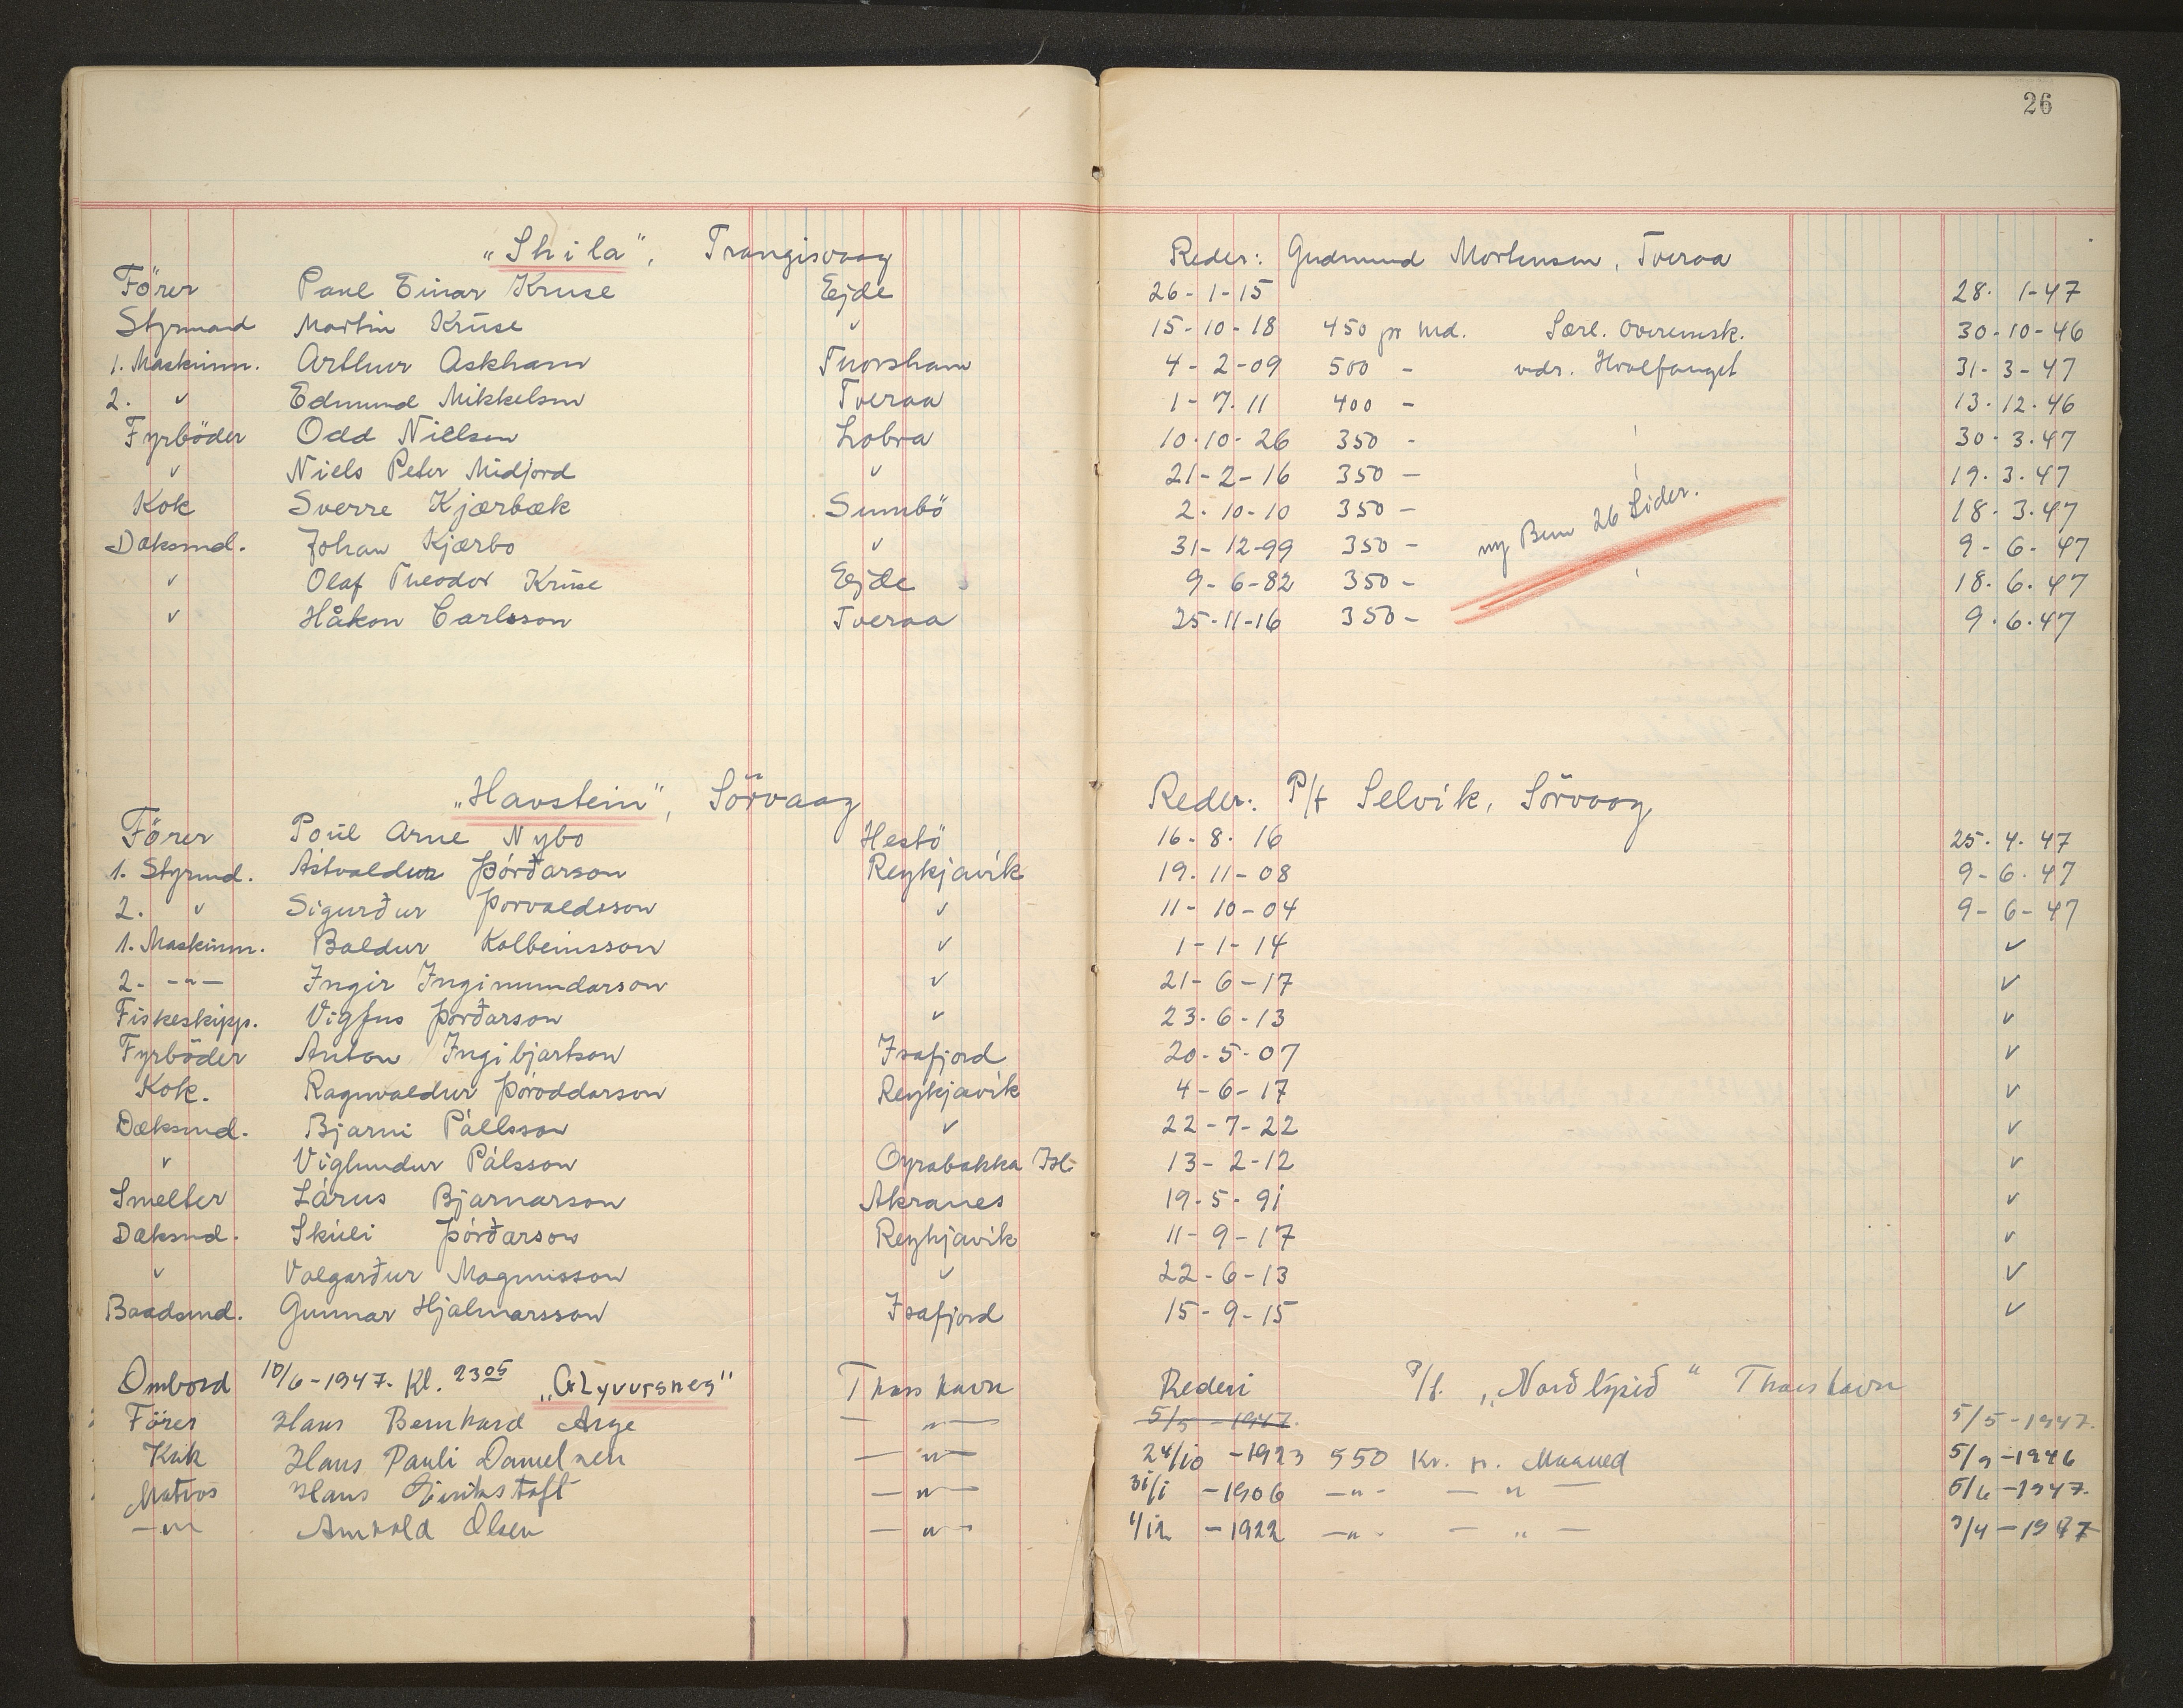 26
„Shila“, Trangisvaag Reder: Gudmund Mortensen, Tveraa
Förer Paul Einar Kruse Ejde 26-1-15 28. 1-47
Styrmand Martin Kruse " 15-10-18 450 pr md. Særl. Overensk. 30-10-46
1. Maskinm. Arthur Askham Thorshavn 4-2-09 500 - vedr. Hvalfanget 31-3-47
2. " Edmund Mikkelsen Tveraa 1-7.11 400 - 13.12.46
Fyrböder Odd Nielsen Lobra 10.10-26 350 - 30.3.47
" Niels Peter Midjord " 21-2-16 350 - 19.3.47
Kok Sverre Kjærbæk Sumbö 2-10-10 350 - 18.3.47
Dæksmd. Johan Kjærbo " 31-12-99 350 - ny Bem 26 Sider. 9-6-47
" Olaf Theodor Kruse Ejde 9-6-82 350 - 18.6.47
" Håkon Carlsson Tveraa 25-11-16 350 - 9.6.47
„Havstein“, Sörvaag Reder: P/f Selvik, Sörvaag
Förer Poul Arne Nybo Hestö 16-8-16 25.4.47
1. Styrmd. Ástvaldur Þórðarson Reykjavík 19.11-08 9-6.47
2. " Sigurður Þorvaldsson " 11-10-04 9-6-47
1. Maskinm. Baldur Kolbeinsson " 1-1-14 "
2- -"- Ingir Ingimundarson " 21-6-17 "
Fiskeskipp. Vigfus Þorðarson " 23-6-13 "
Fyrböder Anton Ingibjartson Isafjord 20-5-07 "
Kok. Ragnvaldur Þóroddarson Reykjavík 4-6-17 "
Dæksmd. Bjarni Pállsson " 22-7-22 "
" Viglundur Pálsson Oyrabakka Isl. 13-2-12 "
Smelter Lárus Bjarnarson Akranes 19-5-91 "
Dæksmd. Skúli Þórðarson Reykjavik 11-9-17 "
" Valgarður Magnusson " 22-6-13 "
Baadsmd. Gunnar Hjalmarsson Isafjord 15-9-15 "
Ombord 10/6-1947. Kl. 23 05 „Glyvursnes“ Thorshavn Rederi P/f. „Norðlýsið“ Thorshavn
Förer Hans Bernhard Arge -"- 5/5-1947. 5/5-1947.
Kok Hans Pauli Danielsen -"- 24/10-1923 550 Kr. p. Maaned 5/9-1946
Matros Hans -"- 31/1-1906 -"- -"- 5/6-1947.
-"- Arnold Olsen -"- 1/12-1922 -"- -"- 9/4-1947